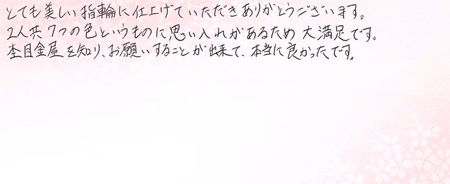 とても美しい指輪に仕上げていただきありがとうございます。
2人共7つの色というものに思い入れがあるため大満足です。
杢目金屋を知り、お願いすることが出来て、本当に良かったです。